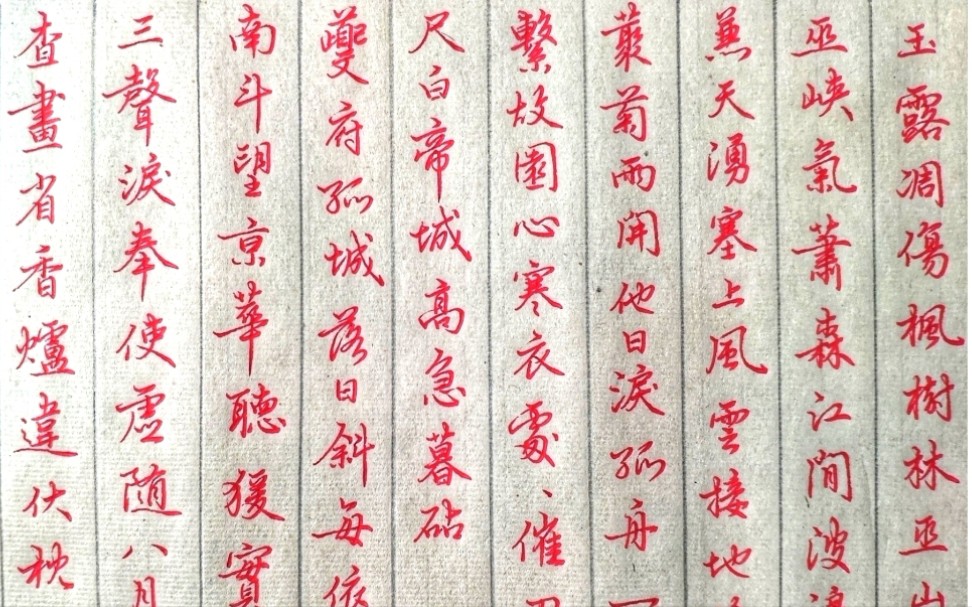 玉露凋傷楓樹林巫山
巫峽氣蕭森江間波浪
兼天湧塞上風雲接地
叢菊兩開他日淚孤舟一
繫故園心寒衣處、催刀
尺白帝城高急暮砧
夔府孤城落日斜每依
南斗望京華聽猨實
三聲淚奉使虛随八月
查畫省香爐違伏枕